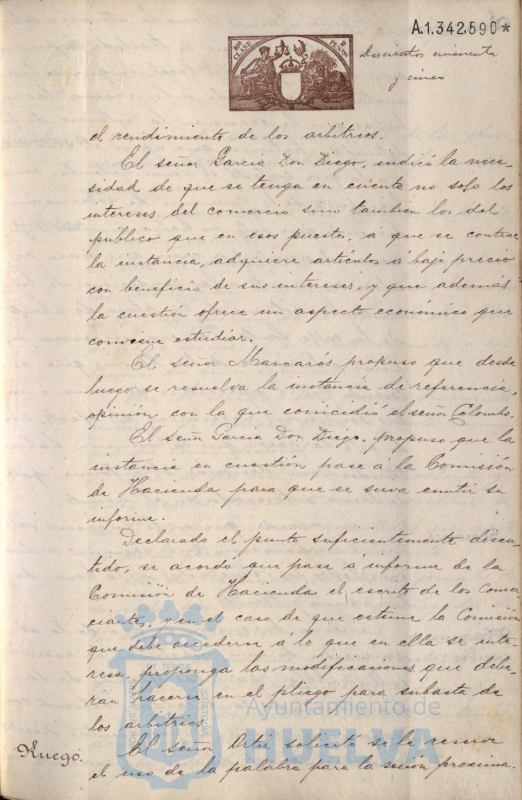 A.1.342.590*
10ª CLASE
2 PESETAS
Doscientos cincuenta
y cinco
el rendimiento de los arbitrios.
El señor Garcia Don Diego, indicó la nece-
sidad de que se tenga en cuenta no solo los
intereses del comercio sino tambien los del
público que en esos puestos, á que se contrae
la instancia, adquiere artículos á bajo precio
con beneficio de sus intereses, y que además
la cuestión ofrece un aspecto económico que
conviene estudiar.
El señor Mascarós propuso que desde
luego se resuelva la instancia de referencia,
opinión con la que coincidió el señor Colombo.
El señor Garcia Don Diego, propuso que la
instancia en cuestión pase á la Comisión
de Hacienda para que se sirva emitir su
informe.
Declarado el punto suficientemente discu-
tido, se acordó que pase á informe de la
Comisión de Hacienda el escrito de los comer-
ciantes, y en el caso de que estime la Comisión
que debe accederse á lo que en ella se inte-
resa, proponga las modificaciones que debe-
ran hacerse en el pliego para subasta de
los arbitrios.
Ruego.
El señor Ortiz solicitó se le reserve
el uso de la palabra para la sesion proxima.
Ayuntamiento de
HUELVA